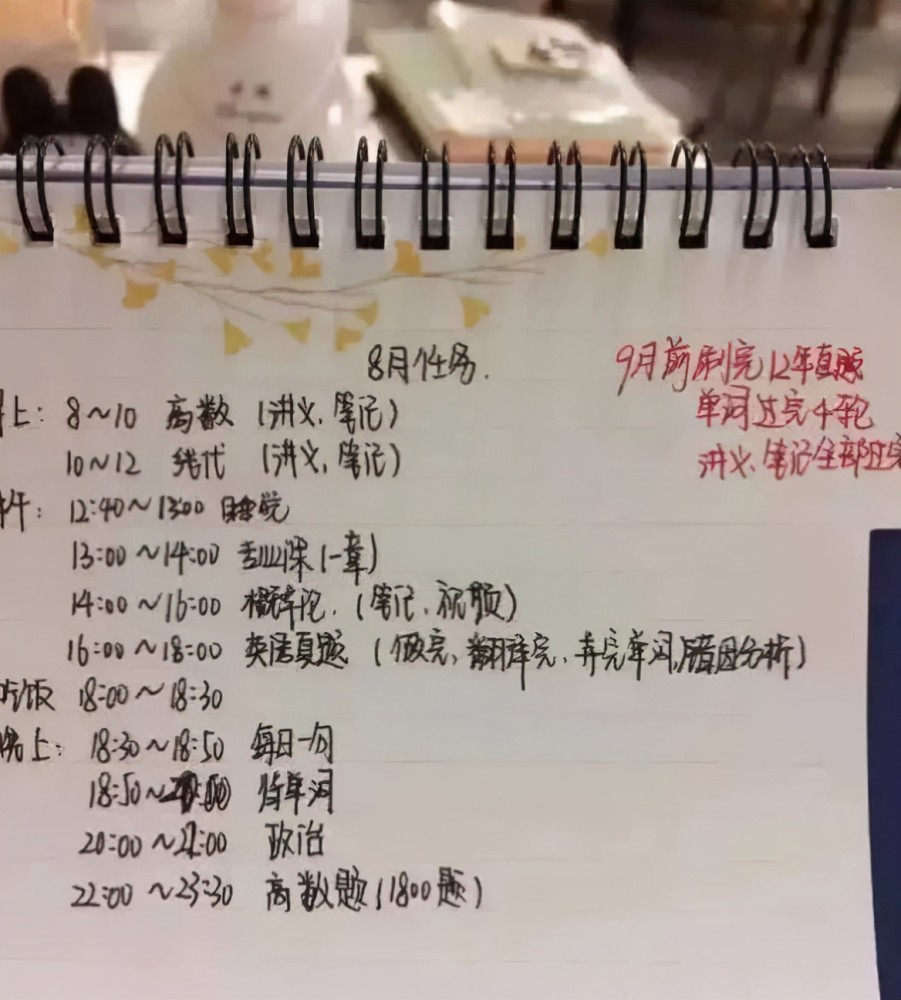 8月任务.
9月前刷完12年真题
单词过完4轮
讲义、笔记全部过完
上: 8~10 高数 (讲义、笔记)
10~12 线代 (讲义、笔记)
午: 12:40~13:00 睡觉
13:00~14:00 专业课(一章)
14:00~16:00 概率论. (笔记、视频)
16:00~18:00 英语真题 (做完, 翻译完, 弄完单词, 错因分析)
吃饭 18:00~18:30
晚上: 18:30~18:50 每日一句
18:50~ 背单词
20:00~21:00 政治
22:00~23:30 高数题(1800题)